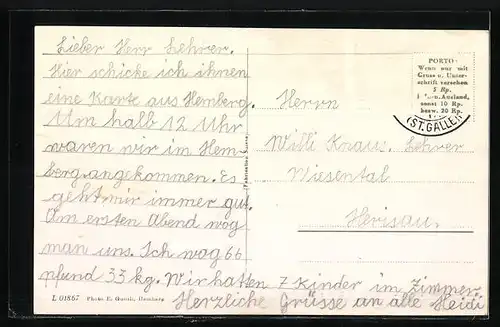 Lieber Herr Lehrer.
Hier schicke ich ihnen
eine Karte aus Hemberg.
Um halb 12 Uhr
waren wir im Hem-
berg angekommen. Es
geht mir immer gut.
Am ersten Abend wog
man uns. Ich wog 66
pfund 33 kg. Wir hatten 7 Kinder im Zimmer
Herzliche Grüsse an alle Heidi
PORTO
Wenn nur mit
Gruss u. Unter-
schrift versehen
5 Rp.
Ausland,
sonst 10 Rp.
bezw. 20 Rp.
(ST. GALLEN)
Herrn
Willi Knaus, Lehrer
Wiesental
Herisau.
L 01857 Photo E. Hemberg